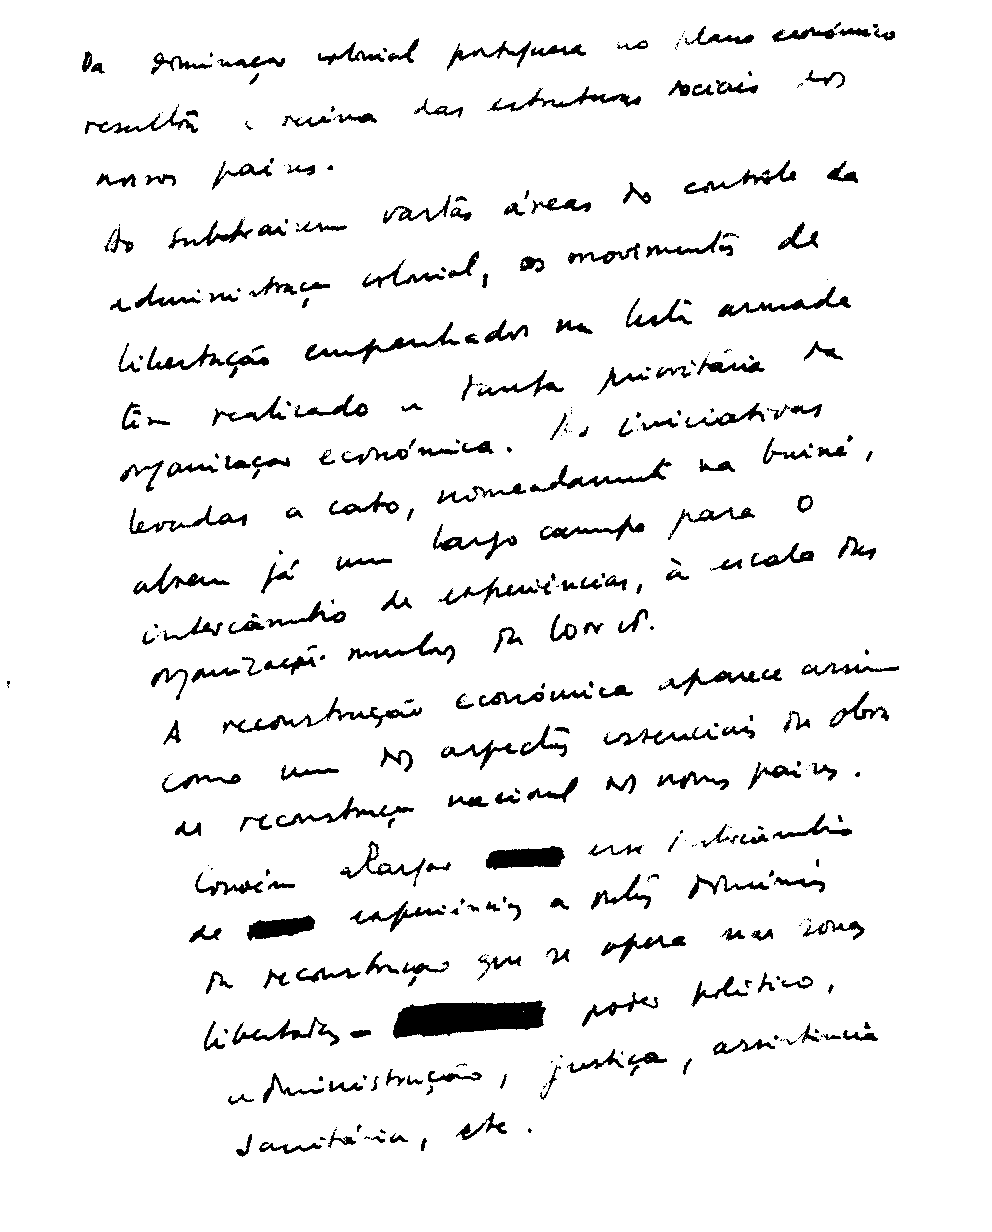 Da dominação colonial portuguesa no plano económico
resultou a ruína das estruturas sociais dos
nossos países.
Ao subtraírem vastas áreas do contrôle da
administração colonial, os movimentos de
libertação empenhados na luta armada
têm realizado a tarefa prioritária da
organização económica. As iniciativas
levadas a cabo, nomeadamente na Guiné,
abrem já um largo campo para o
intercâmbio de experiências, à escala das
organizações membros da CONCP.
A reconstrução económica aparece assim
como um dos aspectos essenciais da obra
de reconstrução nacional dos nossos países.
Convém alargar esse intercâmbio
de experiências a outros domínios
da reconstrução que se opera nas zonas
libertadas - poder político,
administração, justiça, assistência
sanitária, etc.